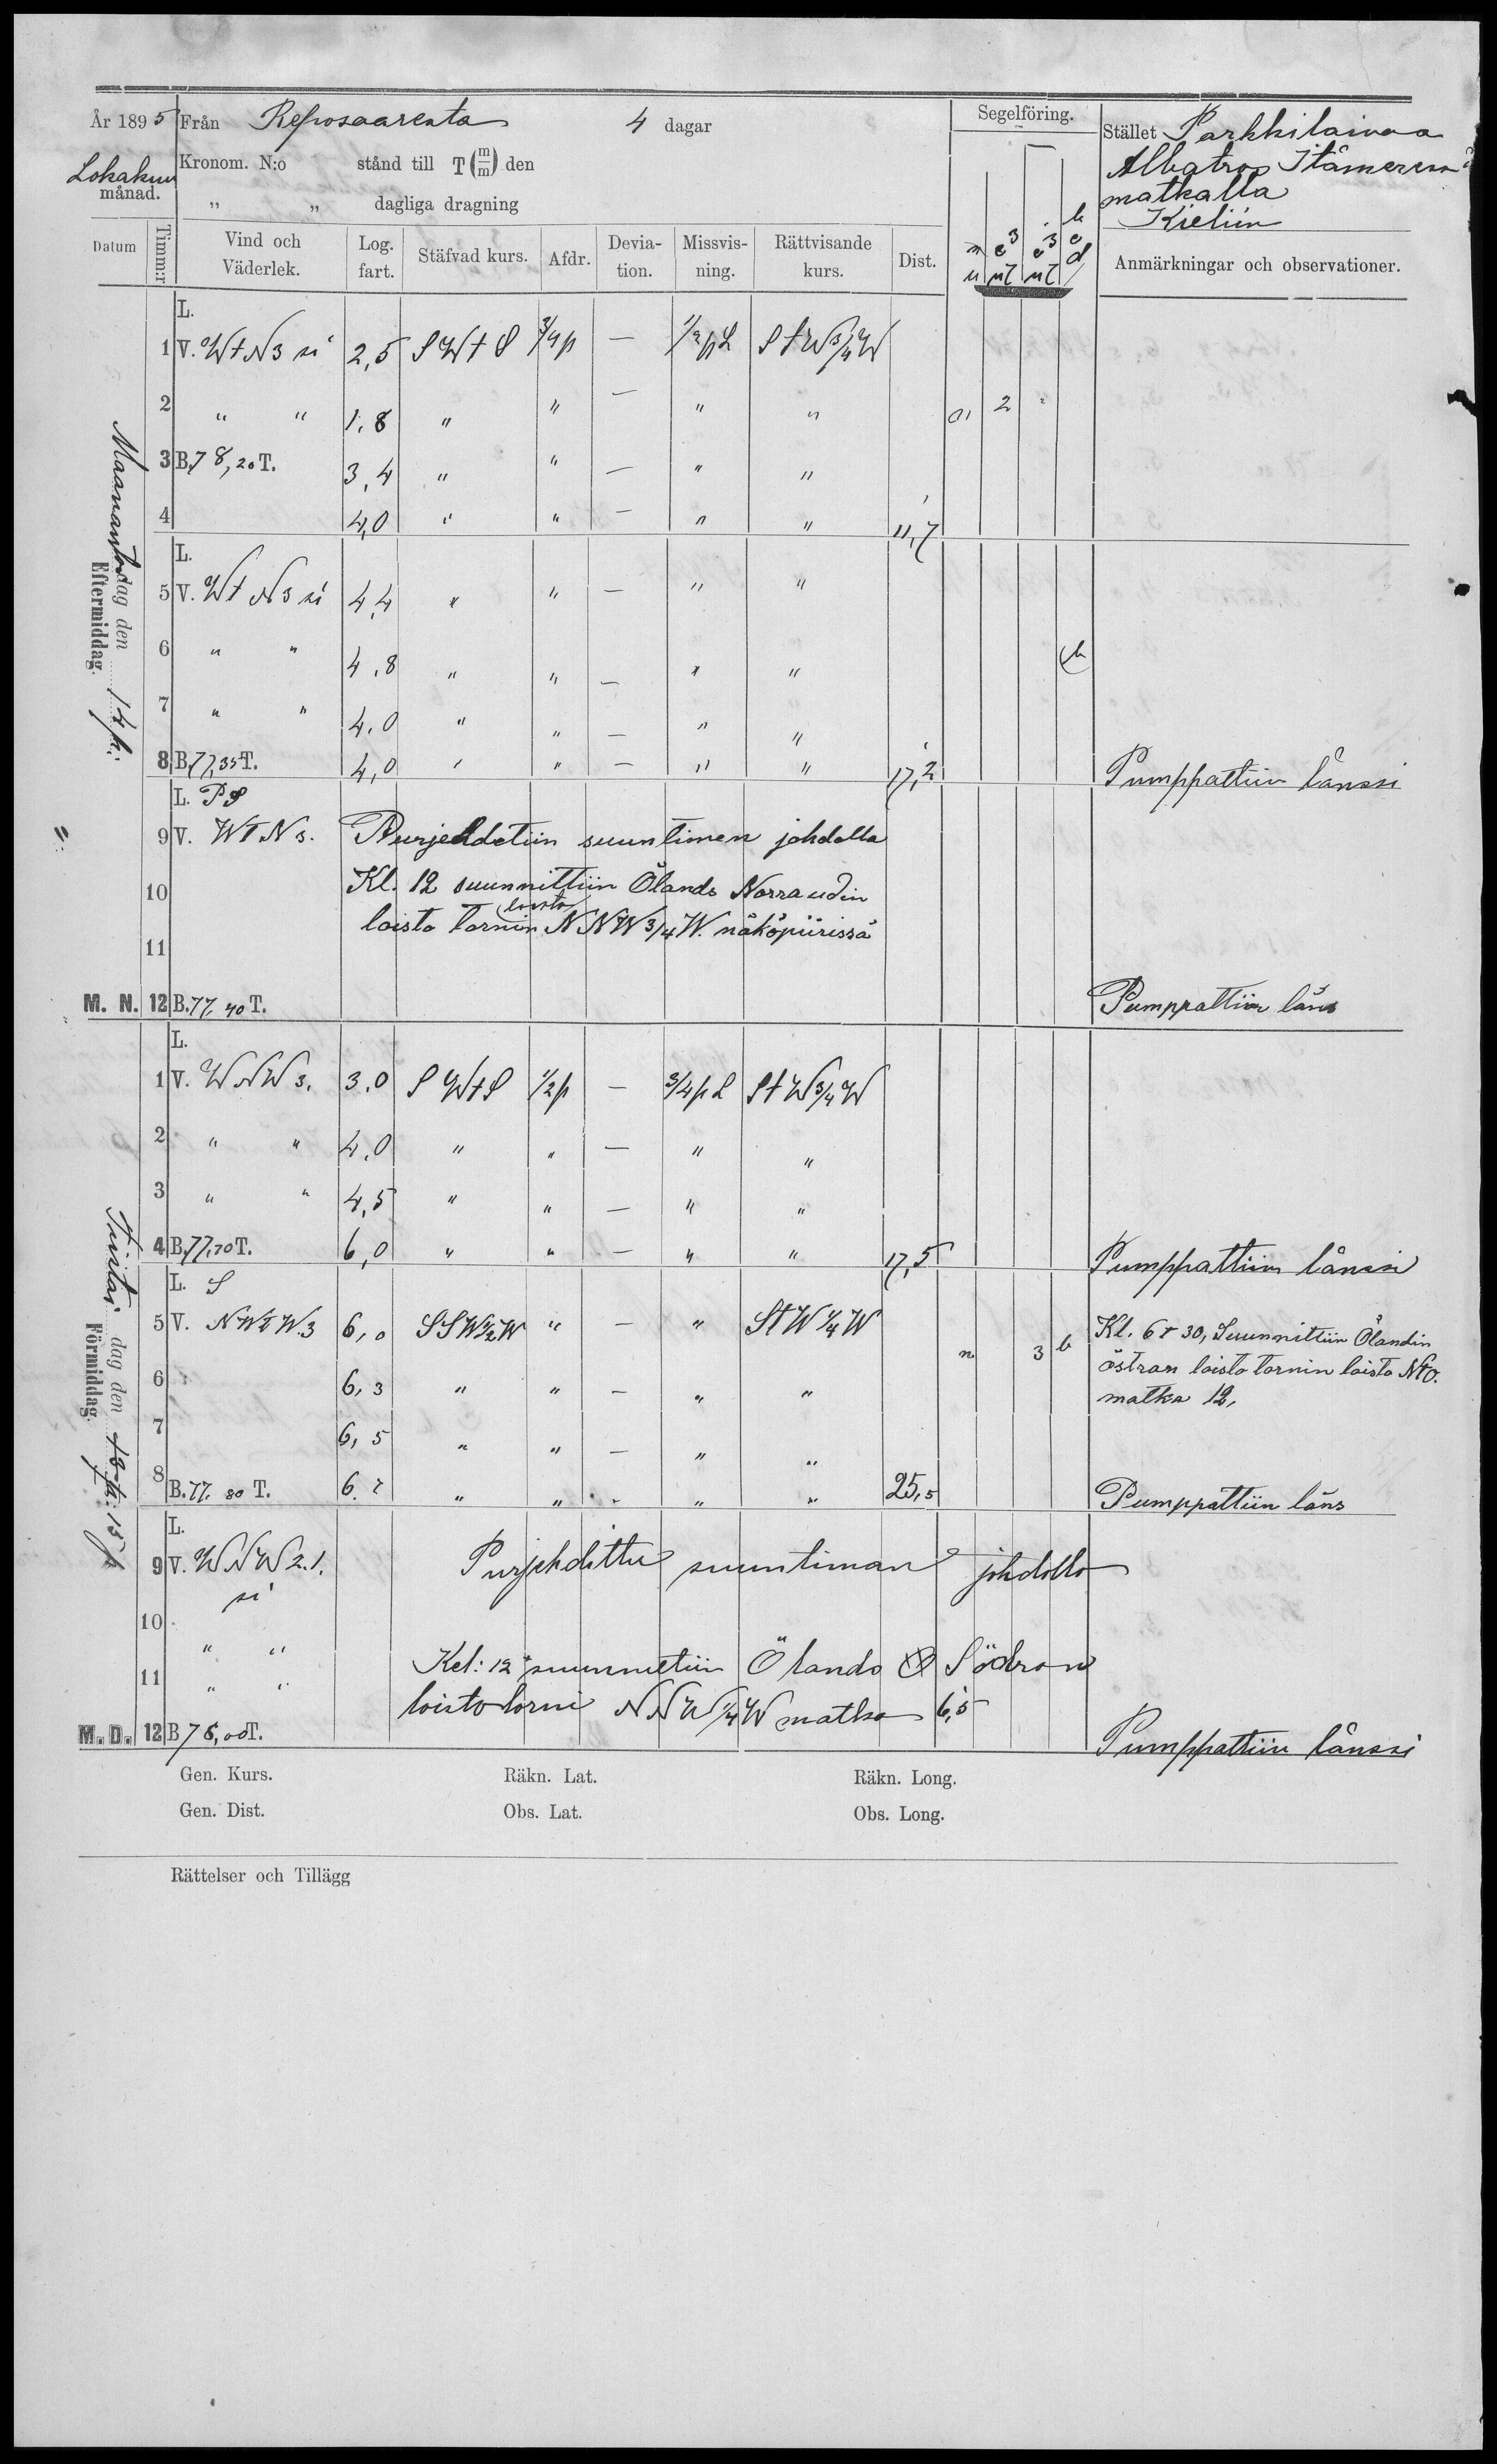 År 1895 Från Reposaaresta 4 dagar Segelföring. Stället Parkkilaivaa
Lokakuu månad. Kronom. N:o stånd till T (m/m) den Albatros Itämeren
„ „ dagliga dragning matkalla
Kieliin
Datum Timm:r Vind och Väderlek. Log. fart. Stäfvad kurs. Afdr. Deviation. Missvisning. Rättvisande kurs. Dist. Anmärkningar och observationer.
Maanantai dag den 14 p. Eftermiddag.
L.
1 V. WtN 3 si 2,5 SWtS 3/4 p — 1/2 p L StW 3/4 W
2 " " 1,8 " " — " " 2 "
3 B. 78,20 T. 3,4 " " — " "
4 4,0 " " — " " 11,7
L.
5 V. WtN 3 si 4,4 " " — " "
6 " " 4,8 " " — " " b
7 " " 4,0 " " — " "
8 B. 77,35 T. 4,0 " " — " " 17,2 Pumppattiin länssi
L. PS
9 V. WtN 3. Purjehdetiin suuntimen johdolla
10 Kl. 12 suunnittiin Ölands Norra udin
loisto
11 loisto tornin NNW 3/4 W. näköpiirissä
M. N. 12 B. 77,40 T. Pumppattiin läns
Tiistai dag den 15 p. Förmiddag.
L.
1 V. WNW 3. 3,0 SWtS 1/2 p — 3/4 p L StW 3/4 W
2 " " 4,0 " " — " "
3 " " 4,5 " " — " "
4 B. 77,70 T. 6,0 " " — " " 17,5 Pumppattiin länssi
L. S
5 V. NWtW. 3 6,0 SSW 1/2 W " — " StW 1/4 W n 3 b Kl. 6 t 30, Suunnittiin Ölandin
östran loisto tornin loisto NtO.
6 6,3 " " — " " matka 12,
7 6,5 " " — " "
8 B. 77. 80 T. 6,7 " " - " " 25,5 Pumppattiin läns
L.
9 V. WNW 2.1. Purjehdittu suuntiman johdolla
si
10 " "
Kel: 12 suunnetiin Ölands Södran
11 " "
loisto torni NNW 1/4 W matka 6,5
M. D. 12 B 78,00 T. Pumppattiin länssi
Gen. Kurs. Räkn. Lat. Räkn. Long.
Gen. Dist. Obs. Lat. Obs. Long.
Rättelser och Tillägg